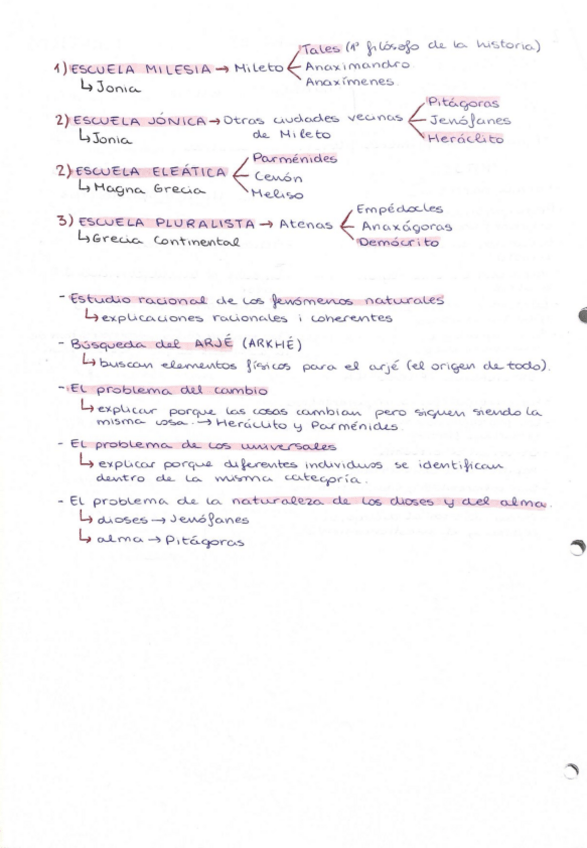 Tales (1º filósofo de la historia)
1) ESCUELA MILESIA → Mileto Anaximandro
↳ Jonia Anaxímenes
Pitágoras
2) ESCUELA JÓNICA → Otras ciudades vecinas Jenófanes
↳ Jonia de Mileto Heráclito
Parménides
2) ESCUELA ELEÁTICA Cenón
↳ Magna Grecia Meliso
Empédocles
3) ESCUELA PLURALISTA → Atenas Anaxágoras
↳ Grecia Continental Demócrito
- Estudio racional de los fenómenos naturales
↳ explicaciones racionales i coherentes
- Búsqueda del ARJÉ (ARKHÉ)
↳ buscan elementos físicos para el arjé (el origen de todo).
- El problema del cambio
↳ explicar porque las cosas cambian pero siguen siendo la
misma cosa. → Heráclito y Parménides
- El problema de los universales
↳ explicar porque diferentes individuos se identifican
dentro de la misma categoría.
- El problema de la naturaleza de los dioses y del alma.
↳ dioses → Jenófanes
↳ alma → Pitágoras